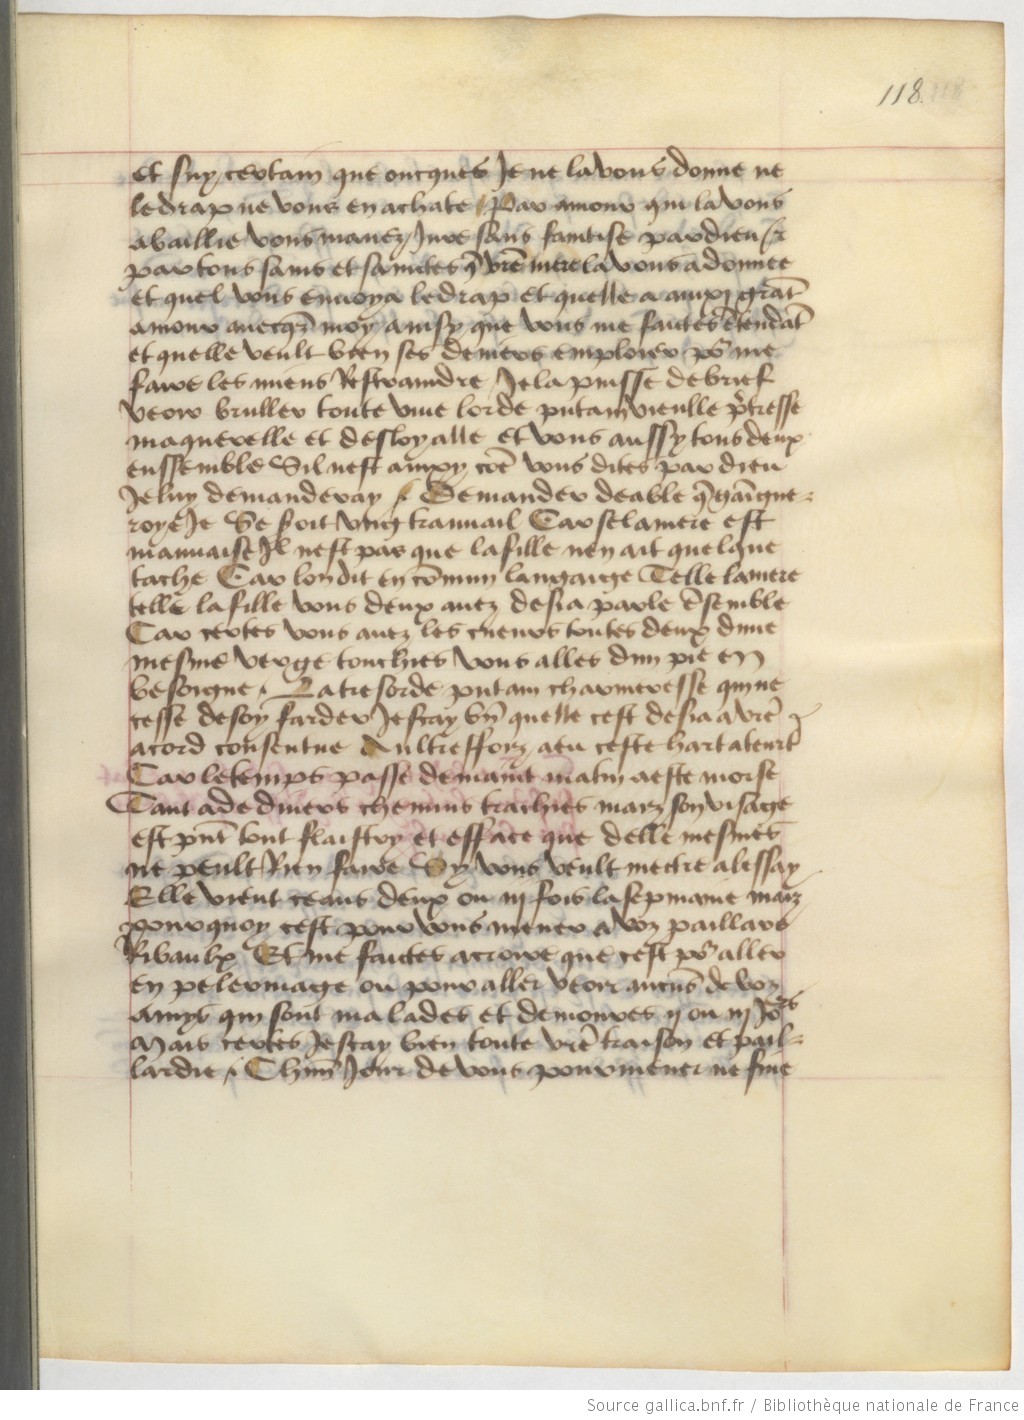 118
et suy certain que oncques Je ne la vous donne ne
le drap ne vous en achate / Par amour qui la vous
a baillie vous manez Jure sans faintise par dieu
par tous sains et sainctes q̃ vr̃e mere la vous a donnee
et quel vous enuoya le drap et quelle a ainxi grãt
amour auecq̃z moy ainsy que vous me faictes ẽtendãt
et quelle veult bien ses deniers emploier po᷑ me
faire les miens Restraindre Je la puisse de brief
veoir bruller toute viue lorde putain vieulle p̃tresse
maquerelle et desloyalle et vous aussy tous deux
enssemble Sil nest ainxy cõe vous dites par dieu
Je luy demanderay / Demander deable q̃
roye Je Se soit vng trauail Car se la mere est
mauuaise Il nest pas que la fille nen ait quelque
tache Car lon dit en cõmun langaige Telle la mere
telle la fille vous deux auez desia parle ẽsemble
Car certes vous auez les cueurs toutes deux dune
mesme verge touchies vous alles dun pie en
besoigne / La tresorde putain charmeresse qui ne
cesse de soy farder Je scay bñ quelle cest desia a vr̃e
acord consentue Aultreffoiz a eu ceste hart
Car le temps passe demaint matin a este morse
Tant a de diuers chemins trachies maiz son visage
est pñt tout flaistry et efface que delle mesmes
ne peult Rien faire Sy vous veult mectre a lessay
Elle vient ceans deux ou iij fois la sepmaine maiz
pourquoy cest pour vous mener a voz paillars
Ribaulx Et me faictes accroire que cest po᷑ aller
en pelermage ou pour aller veoir aucũs de voz
amys qui sont malades et demoures ij ou iij Jo᷑s
Mais certes Je scay bien toute vr̃e traison et pail-
lardie / Chũn Jour de vous pourmener ne fine
Source gallica.bnf.fr / Bibliothèque nationale de France